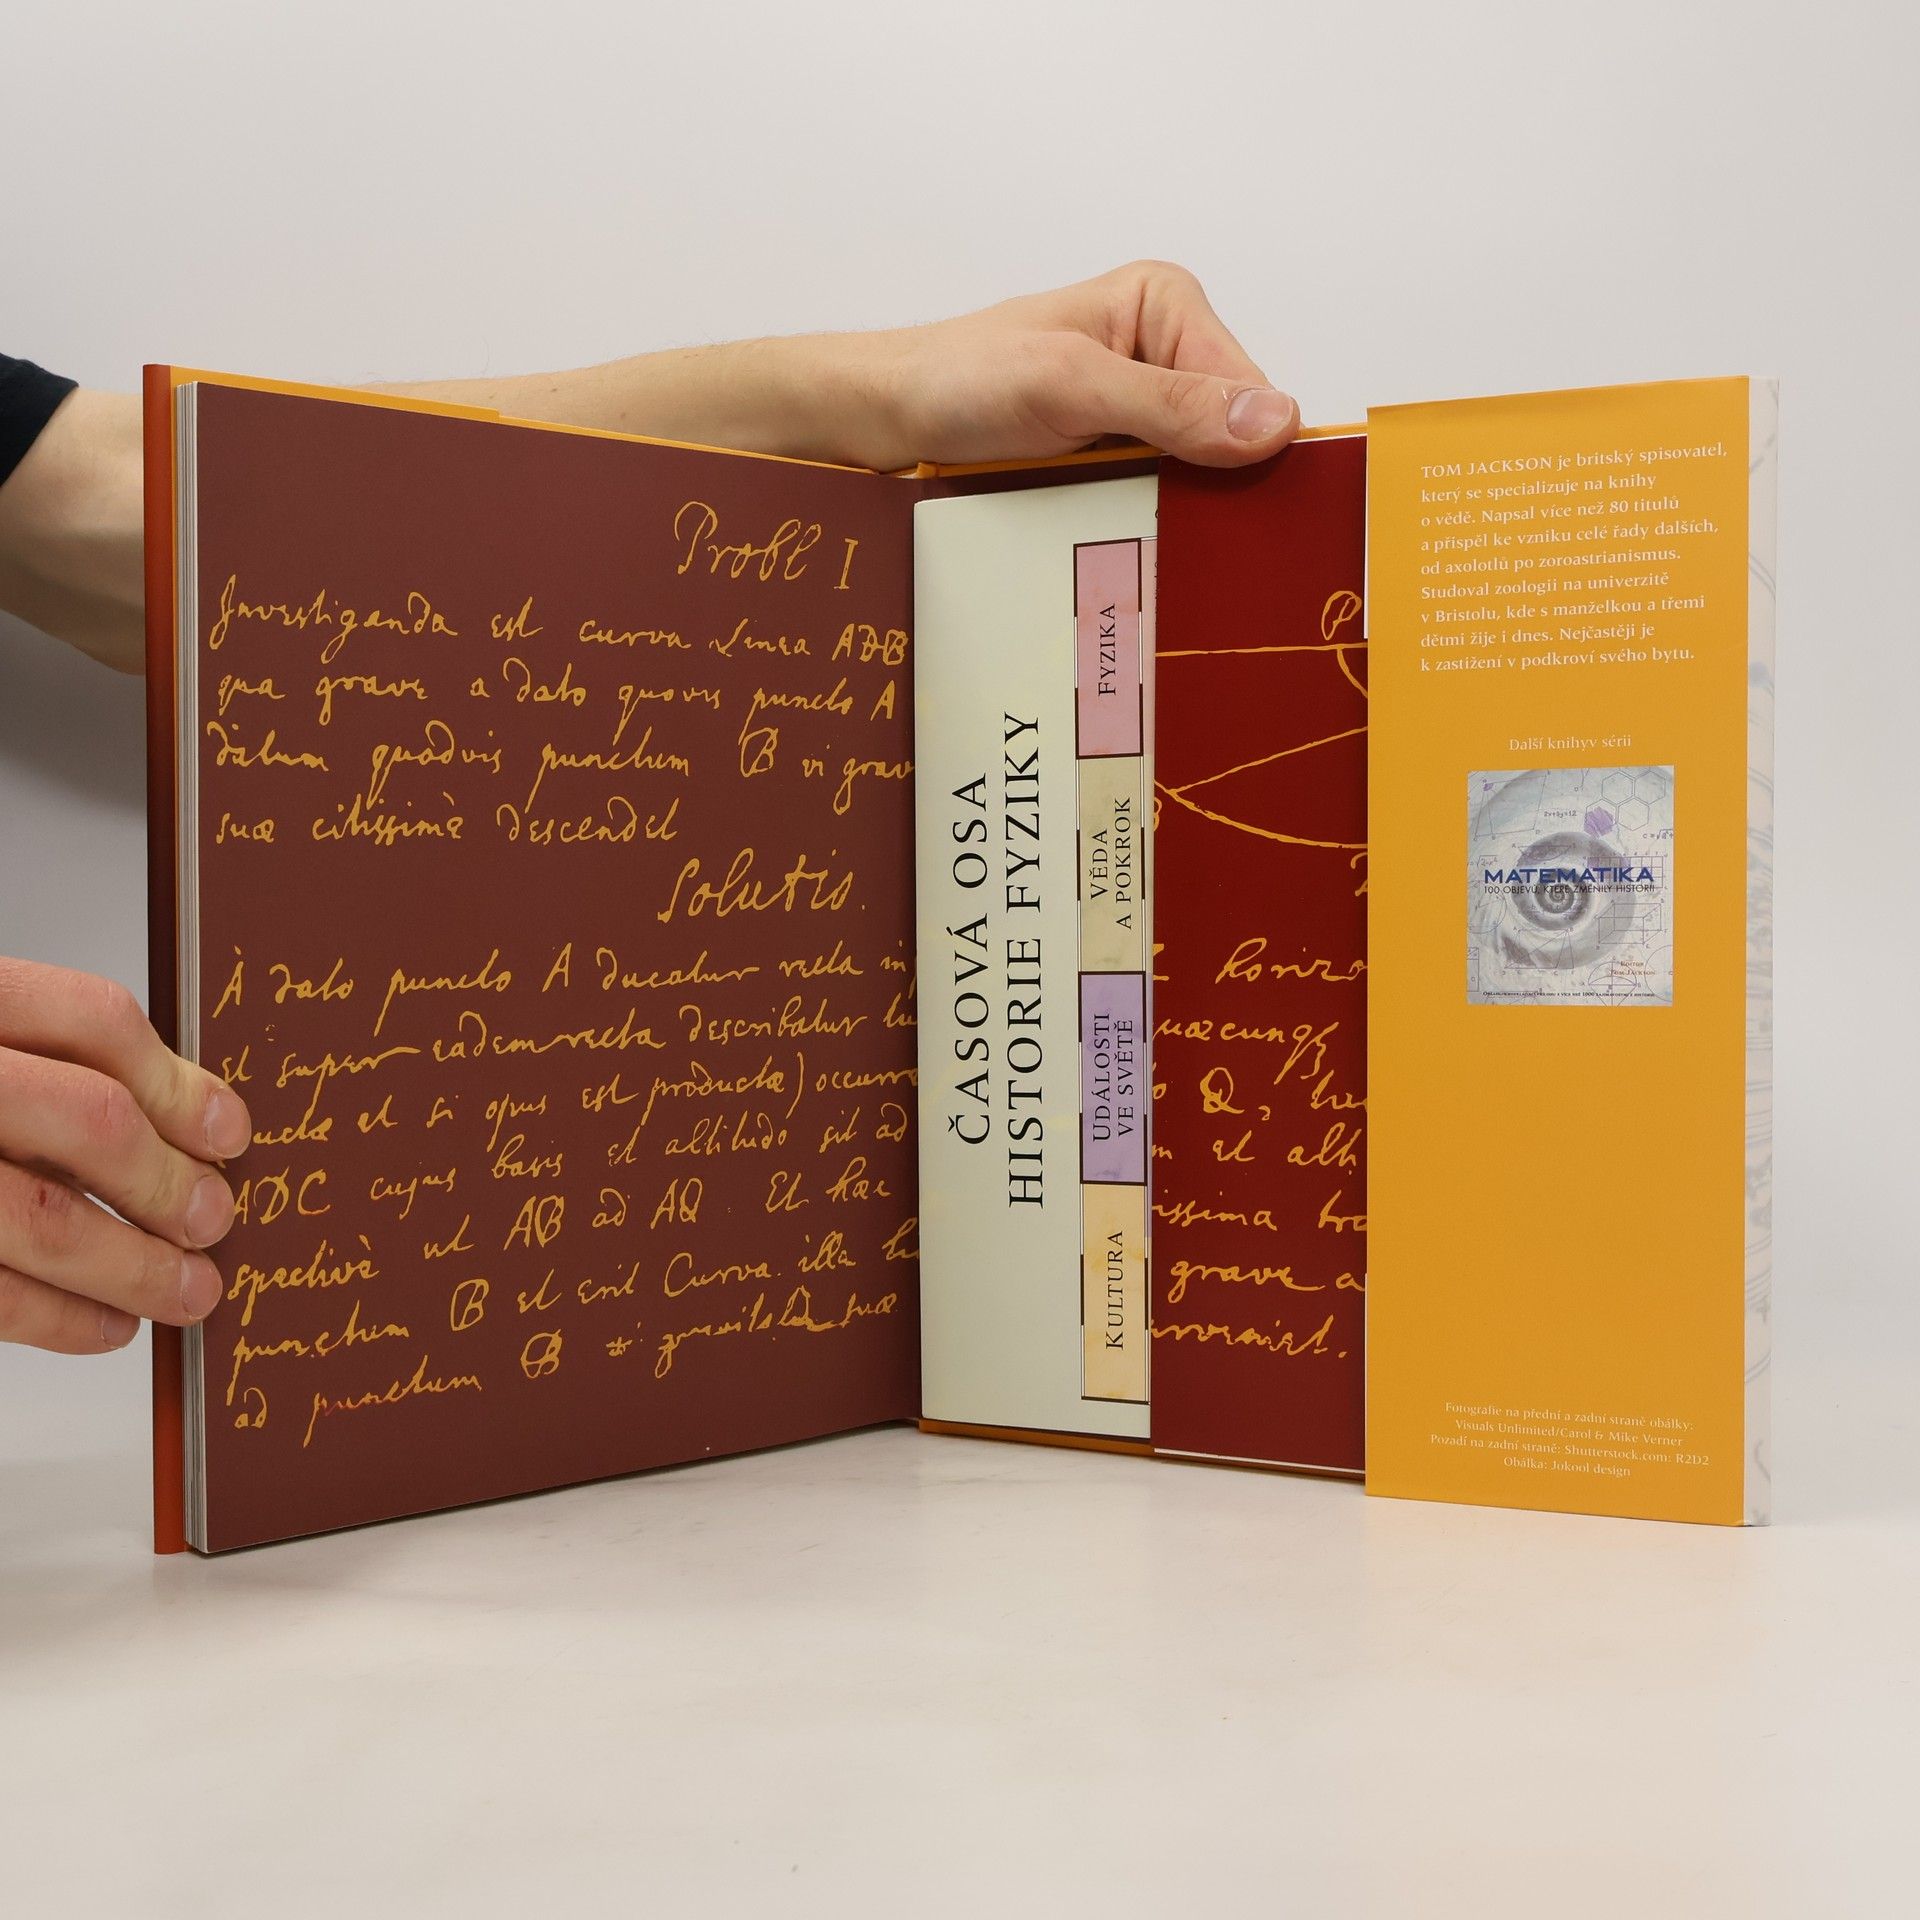 Probl I
Investiganda est curva Linea ADB
qua grave a dato quovis puncto A
datum quodvis punctum B vi grav
suæ citissimè descendet
Solutio.
À dato puncto A ducatur recta in
et super eadem recta describatur
ducta et si opus est producta) occurr
ADC cujus basis et altitudo sit ad
spectivè ut AB ad AQ. Et hæc
punctum B et erit Curva illa
ad punctum B gravitatis suæ
ČASOVÁ OSA
HISTORIE FYZIKY
FYZIKA
VĚDA
A POKROK
UDÁLOSTI
VE SVĚTĚ
KULTURA
P
horizo
uæcunqz
Q,
m et alti
issima tra
grave a
TOM JACKSON je britský spisovatel,
který se specializuje na knihy
o vědě. Napsal více než 80 titulů
a přispěl ke vzniku celé řady dalších,
od axolotlů po zoroastrianismus.
Studoval zoologii na univerzitě
v Bristolu, kde s manželkou a třemi
dětmi žije i dnes. Nejčastěji je
k zastižení v podkroví svého bytu.
Další knihyv sérii
MATEMATIKA
100 OBJEVŮ, KTERÉ ZMĚNILY HISTORII
EDITOR
TOM JACKSON
Fotografie na přední a zadní straně obálky:
Visuals Unlimited/Carol & Mike Verner
Pozadí na zadní straně: Shutterstock.com: R2D2
Obálka: Jokool design